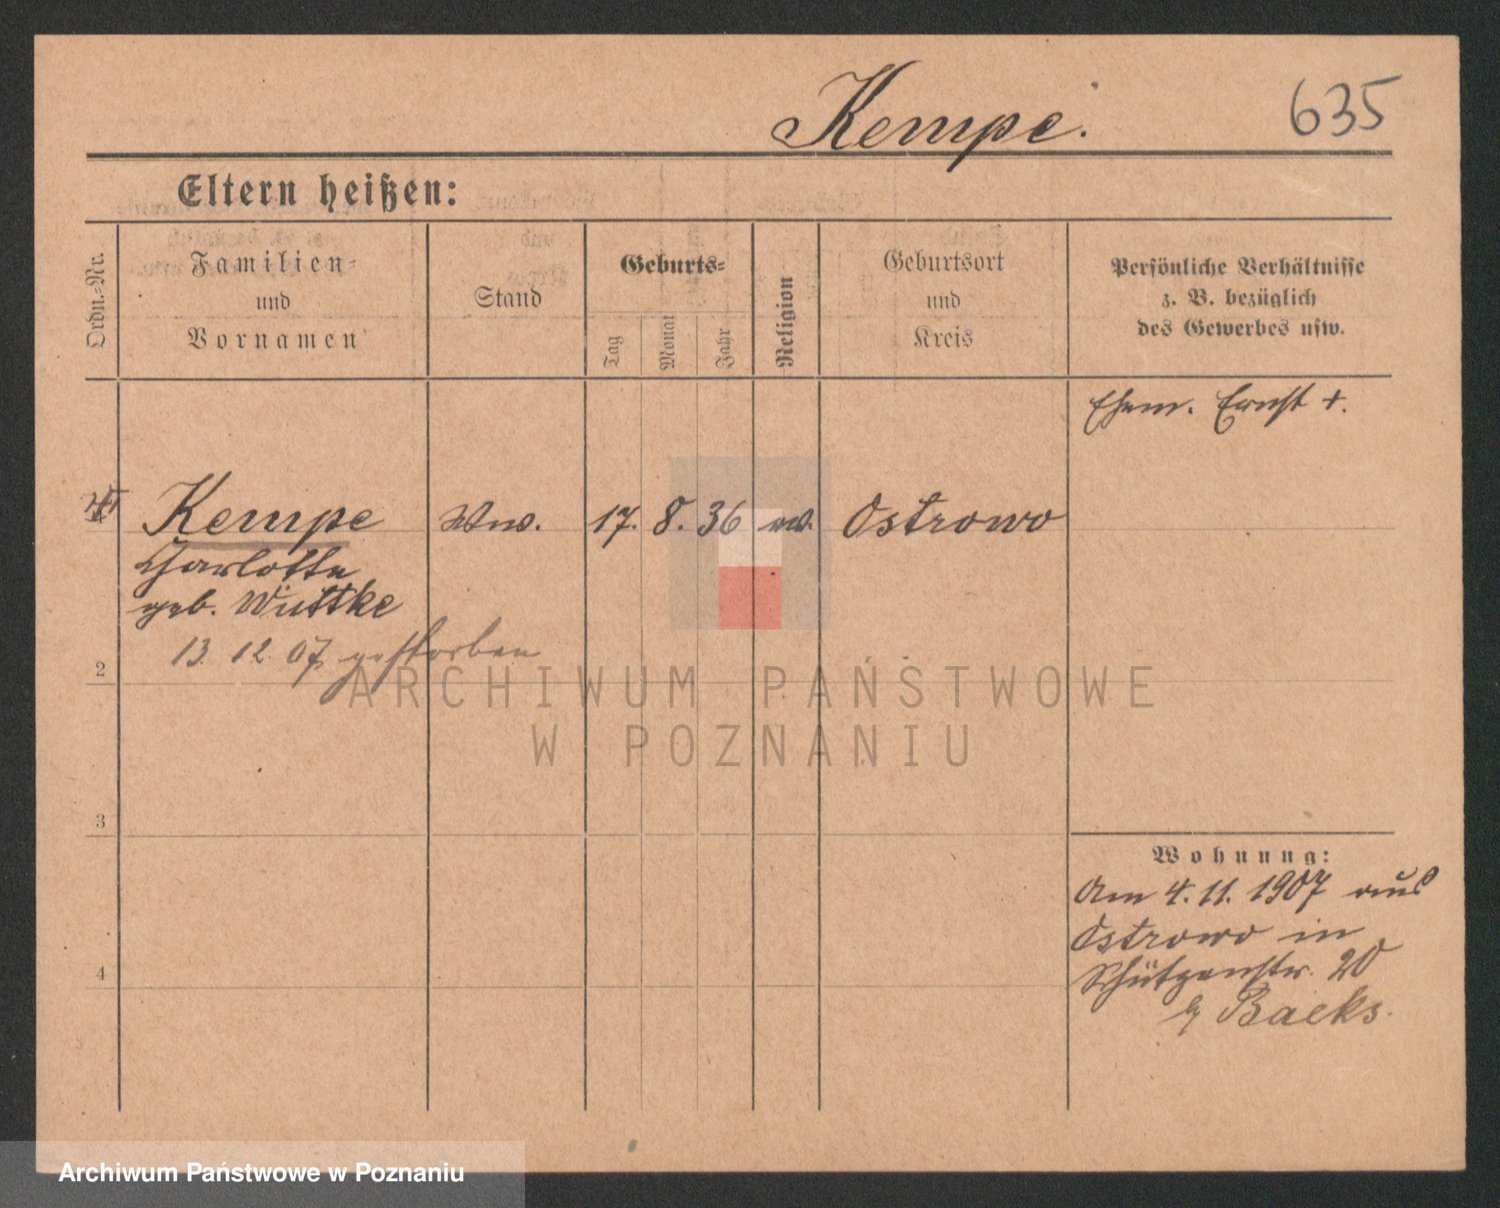 Kempe.
635
Eltern heißen:
Ordn.-Nr.
Familien-
und
Vornamen
Stand
Geburts-
Tag
Monat
Jahr
Religion
Geburtsort
und
Kreis
Persönliche Verhältnisse
z. B. bezüglich
des Gewerbes usw.
Ehem. Ernst +.
Kempe Ww. 17. 8. 36 ev. Ostrowo
Charlotte
geb. Wuttke
13. 12. 07 gestorben
2
3
4
Wohnung:
Am 4. 11. 1907 aus
Ostrowo in
Schützenstr. 20
b/ Baeks.
ARCHIWUM PAŃSTWOWE
W POZNANIU
Archiwum Państwowe w Poznaniu